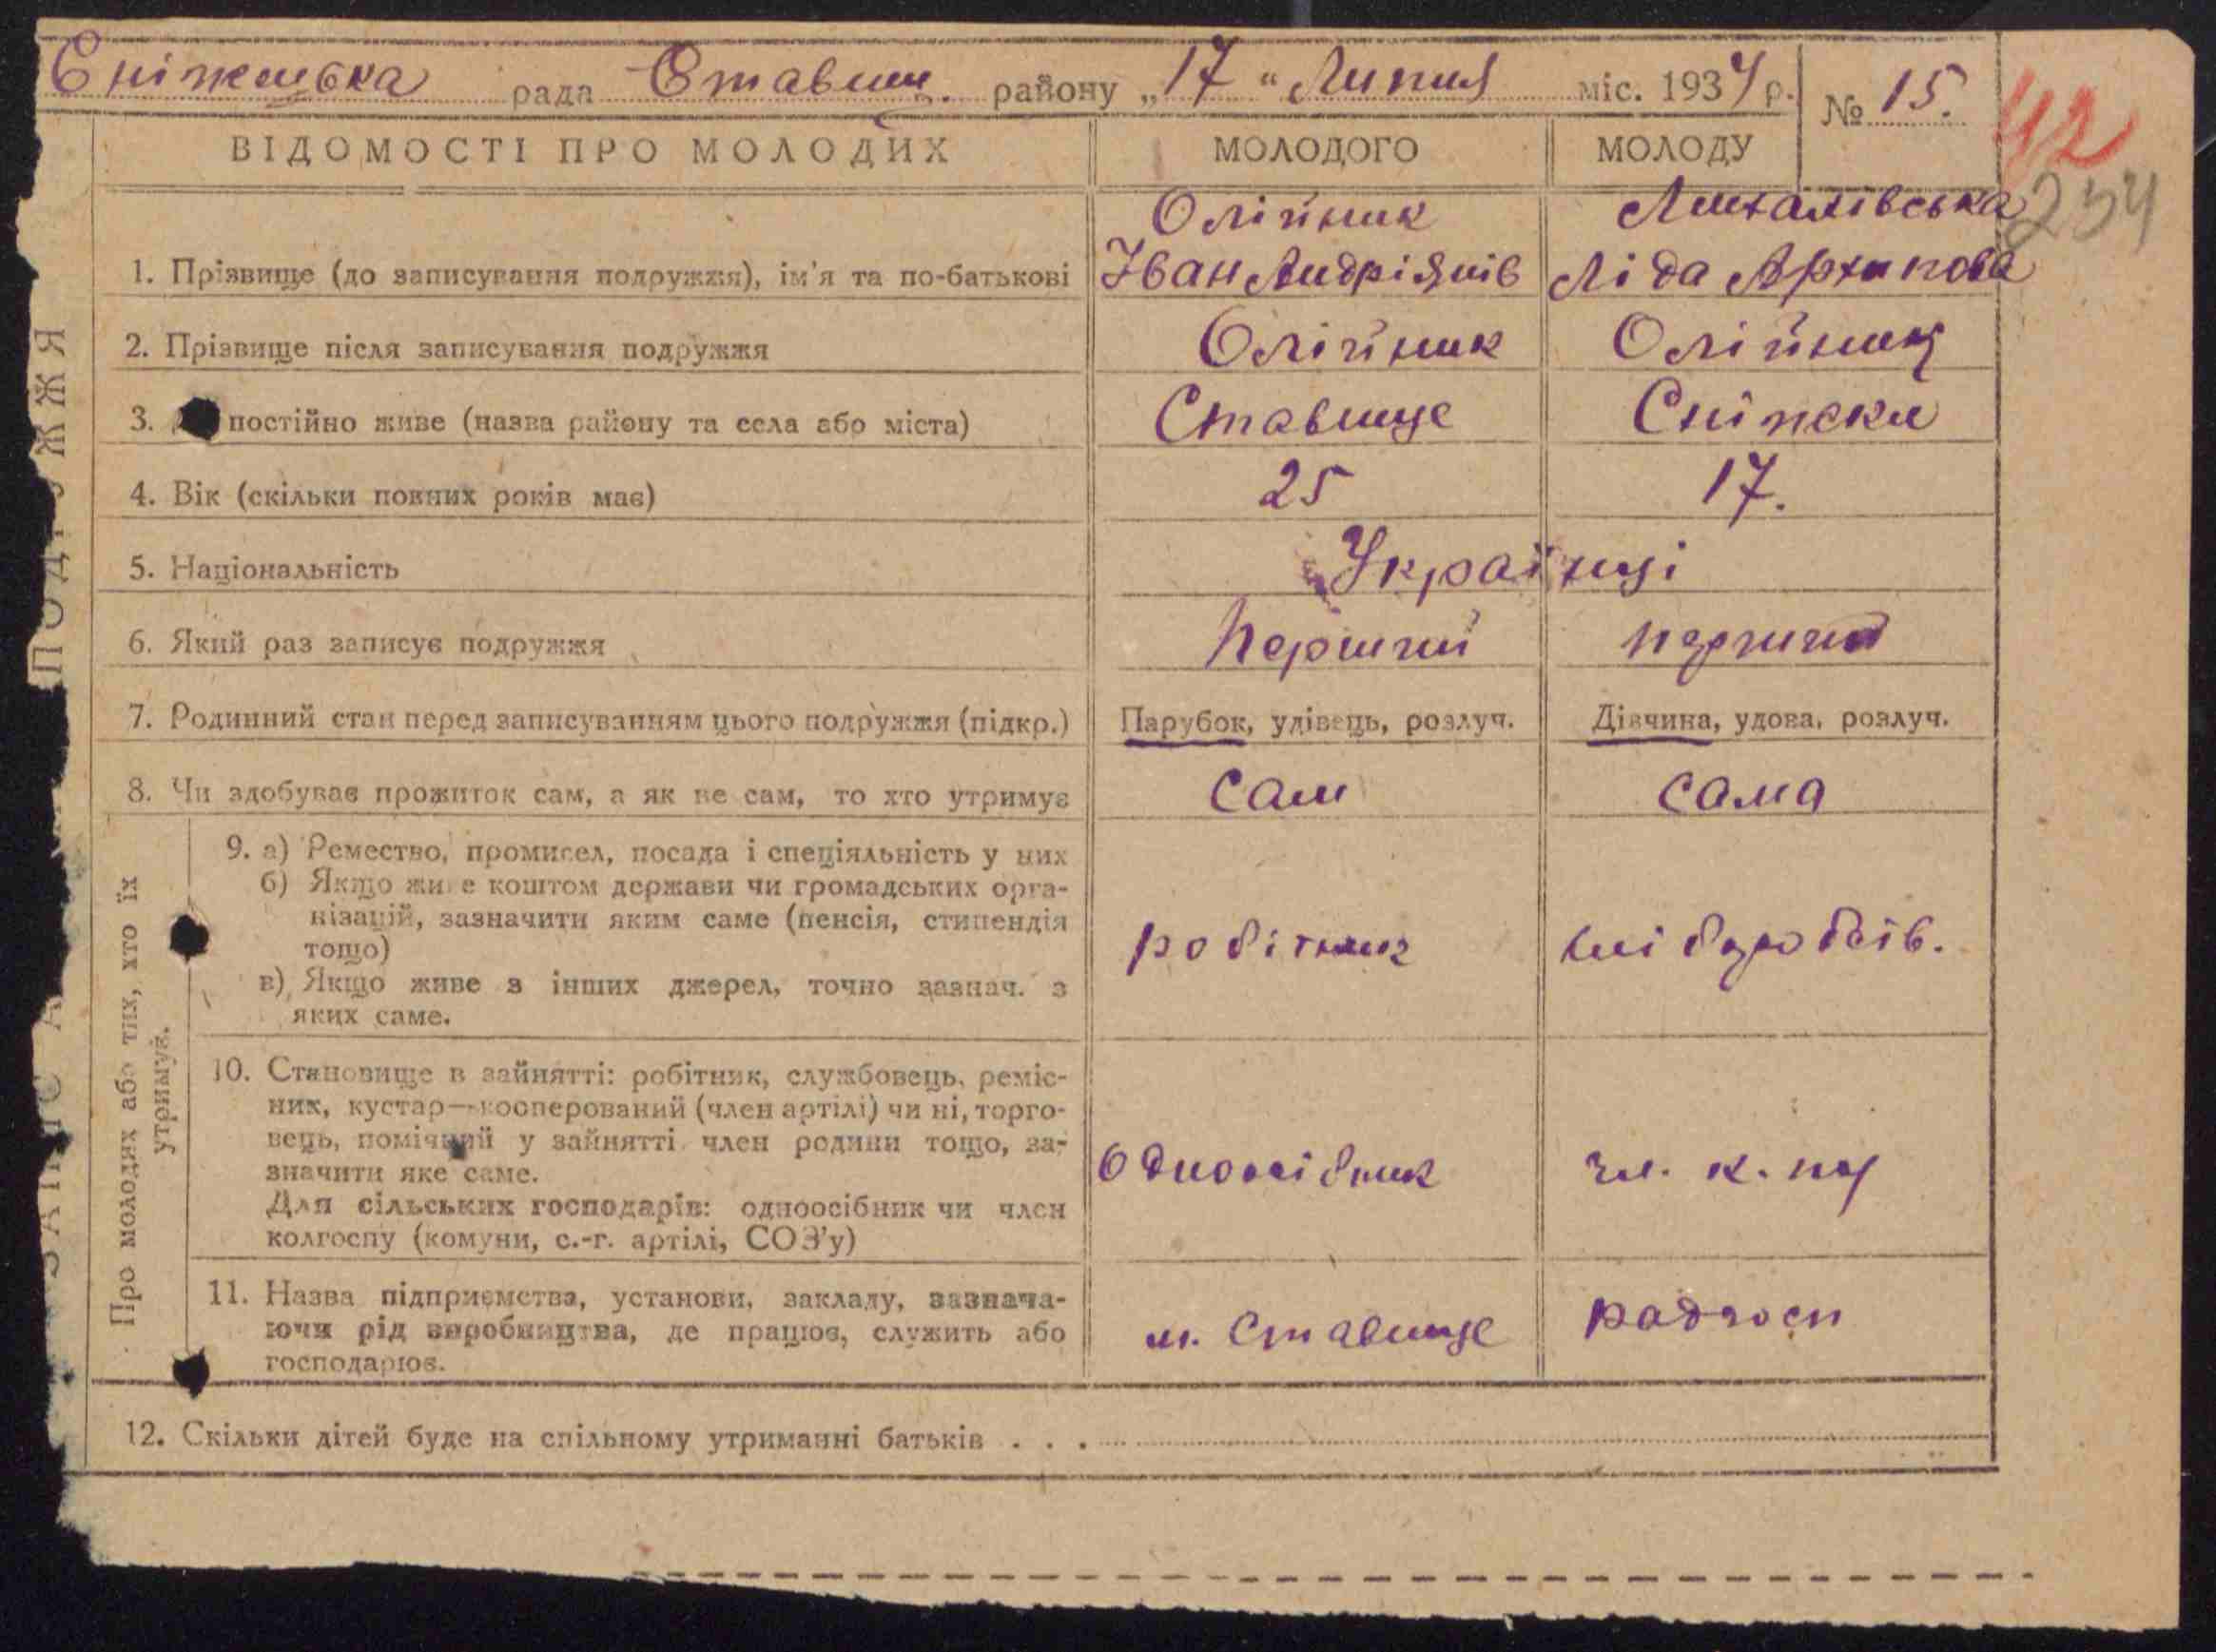 Сніжецька рада Ставищ. району „17" Липня міс. 1934 р. № 15.
42
ВІДОМОСТІ ПРО МОЛОДИХ МОЛОДОГО МОЛОДУ
234
Олійник
1. Прізвище (до записування подружжя), ім'я та по-батькові Іван Андріянів Ліда
2. Прізвище після записування подружжя Олійник Олійник
3. постійно живе (назва району та села або міста) Ставище Сніжки
4. Вік (скільки повних років має) 25 17.
5. Національність Українці
6. Який раз записує подружжя Перший перший
7. Родинний стан перед записуванням цього подружжя (підкр.) Парубок, удівець, розлуч. Дівчина, удова, розлуч.
8. Чи здобуває прожиток сам, а як не сам, то хто утримує сам сама
Про молодих або тих, хто їх
утримує.
9. а) Ремество, промисел, посада і спеціяльність у них
б) Якщо живе коштом держави чи громадських орга-
нізацій, зазначити яким саме (пенсія, стипендія
тощо)
в) Якщо живе з інших джерел, точно зазнач. з
яких саме.
робітник
10. Становище в зайнятті: робітник, службовець, реміс-
ник, кустар—кооперований (член артілі) чи ні, торго-
вець, помічний у зайнятті член родини тощо, за-
значити яке саме.
Для сільських господарів: одноосібник чи член
колгоспу (комуни, с.-г. артілі, СОЗ'у)
Одноосібник
11. Назва підприємства, установи, закладу, зазнача-
ючи рід виробництва, де працює, служить або
господарює.
м. Ставище радгосп
12. Скільки дітей буде на спільному утриманні батьків . . .
ЗАПИС
ПОДРУЖЖЯ